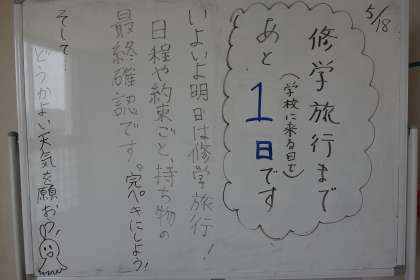 5/18
修学旅行まで
(学校に来る日で)
あと1日です
いよいよ明日は修学旅行!
日程や約束ごと、持ち物の
最終確認です。完ペキにしよう!
そして…
どうかよい天気を願おう!